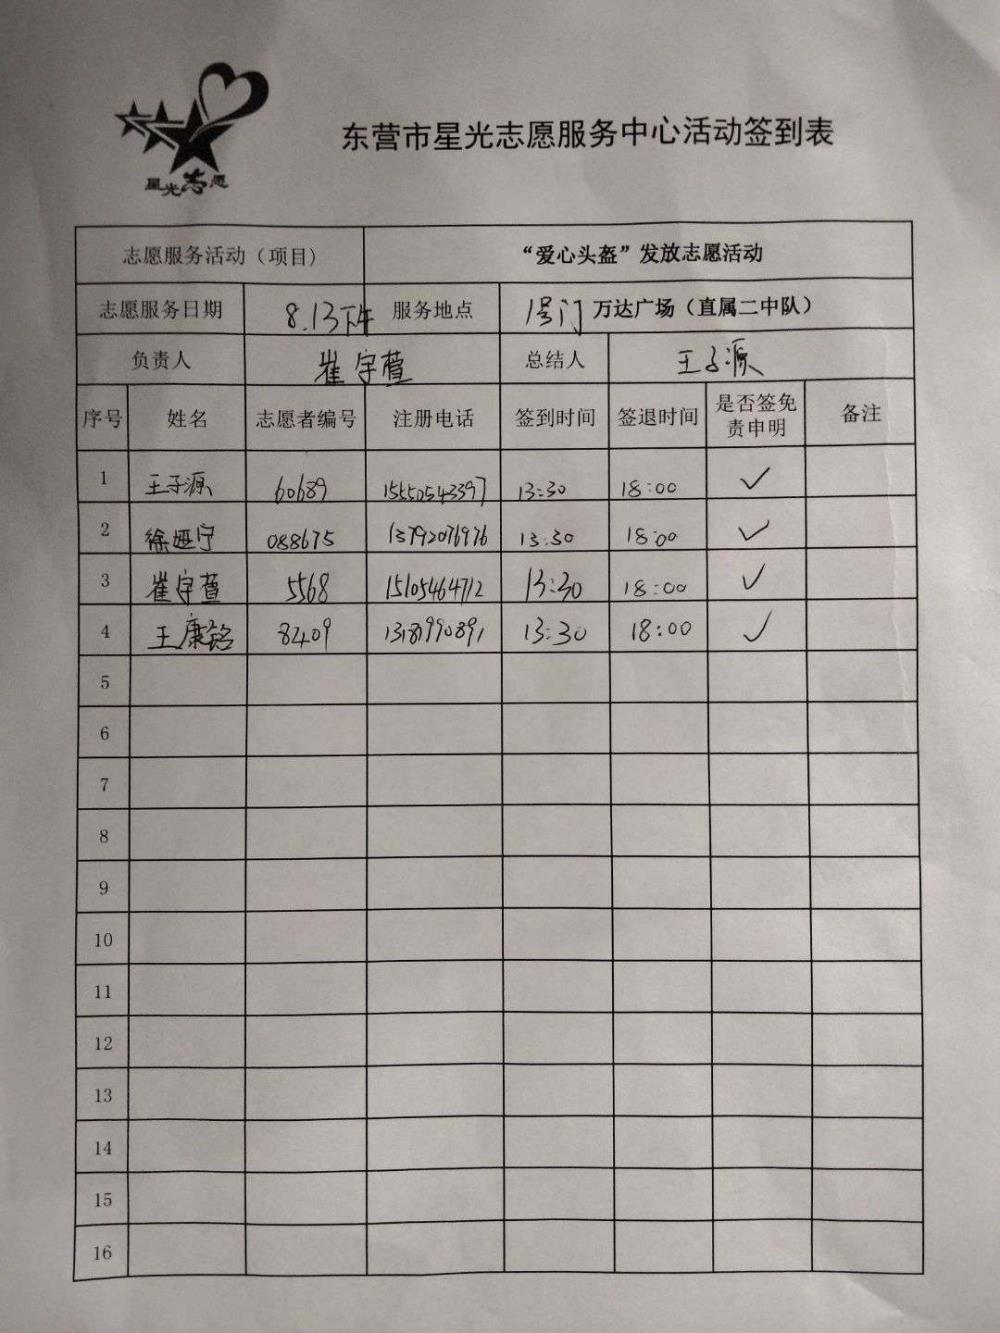 星光志愿
东营市星光志愿服务中心活动签到表
志愿服务活动（项目） “爱心头盔”发放志愿活动
志愿服务日期 8.13下午 服务地点 1号门 万达广场（直属二中队）
负责人 崔宇萱 总结人 王子源
序号 姓名 志愿者编号 注册电话 签到时间 签退时间 是否签免责申明 备注
1 王子源 60689 15550543397 13:30 18:00 ✓
2 徐娅宁 088675 13792076976 13:30 18:00 ✓
3 崔宇萱 5568 15105464712 13:30 18:00 ✓
4 王康铭 8409 13181990891 13:30 18:00 ✓
5
6
7
8
9
10
11
12
13
14
15
16